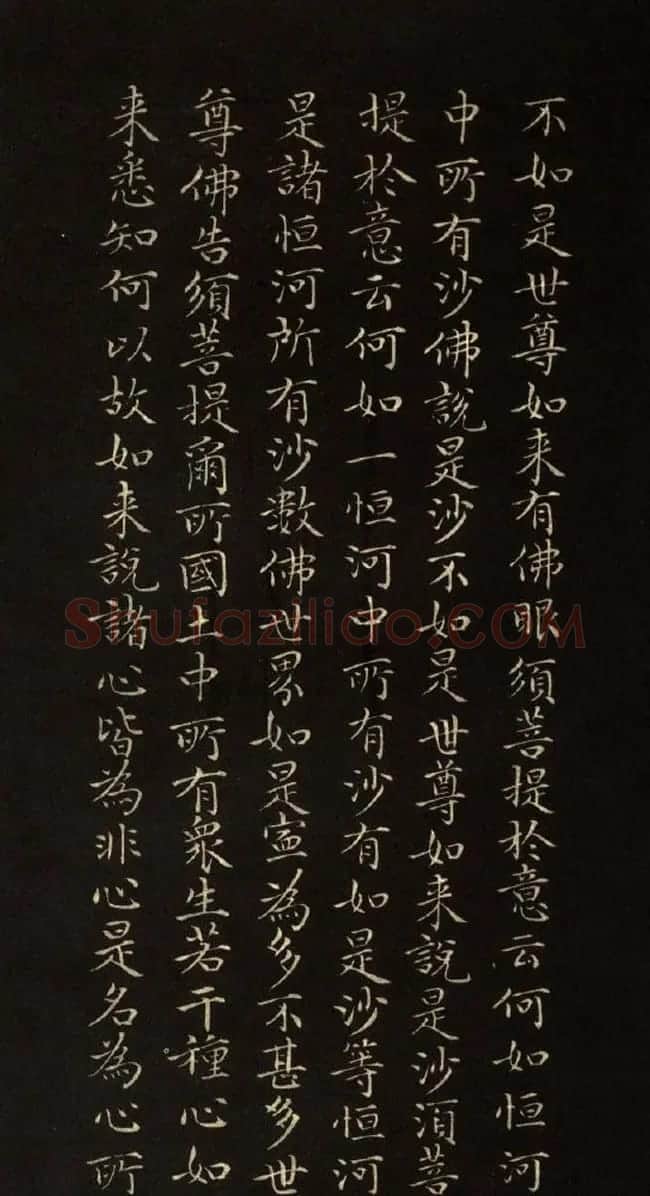 不如是世尊如来有佛眼須菩提於意云何如恒河
中所有沙佛說是沙不如是世尊如来說是沙須菩
提於意云何如一恒河中所有沙有如是沙等恒河
是諸恒河所有沙數佛世界如是寍為多不甚多世
尊佛告須菩提爾所國土中所有衆生若干種心如
来悉知何以故如来說諸心皆為非心是名為心所
Shufaziliao.COM